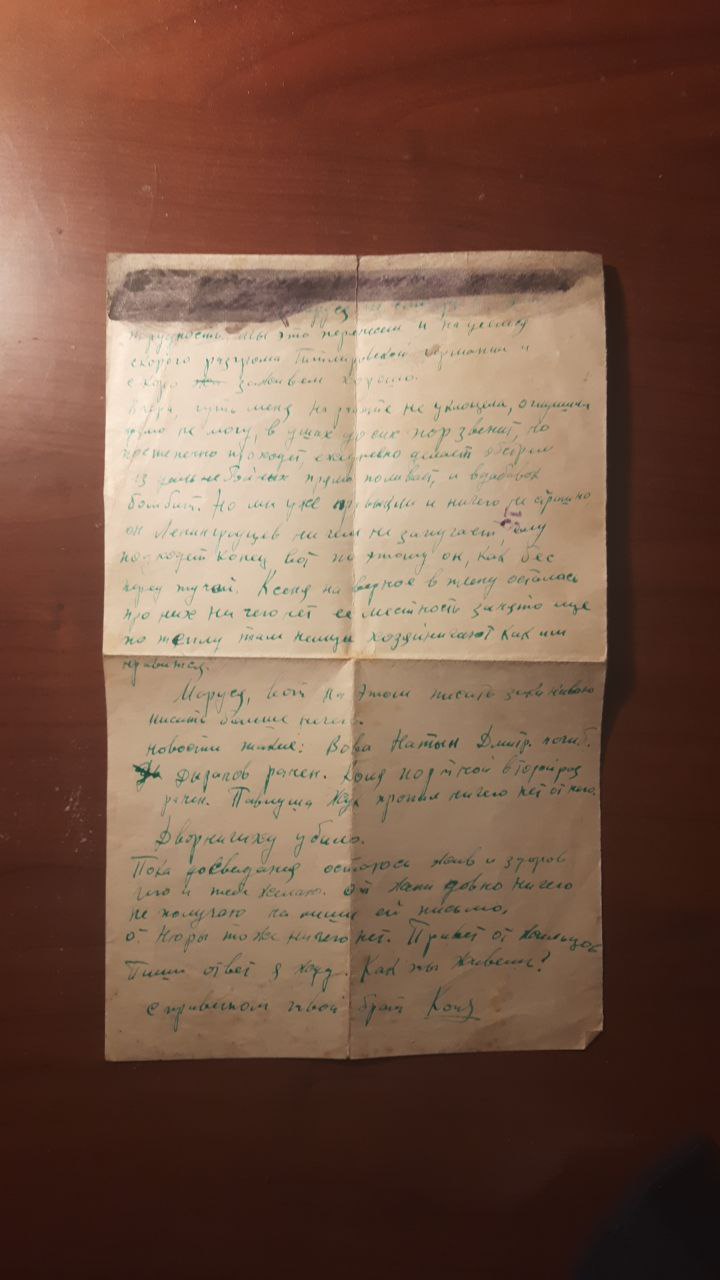 Маруся
трудности. Мы это перенесли и надеюсь
скорого разгрома Гитлеровской Германии и
скоро заживем хорошо.
Вчера, чуть меня на работе не укокошила,
не могу, в ушах до сих пор звенит, но
постепенно проходит, ежедневно делает обстрел
из дальнобойных прямо поливает, и вдобавок
бомбит. Но мы уже привыкли и ничего не страшно
он Ленинградцев ничем не запугает, ему
подходит конец вот по этому он, как бес
перед тучей. Ксеня наверное в плену осталась
про них ничего нет ее местность занято еще
по теплу там немцы хозяйничают как им
нравится.
Маруся, вот на этом писать заканчиваю
писать больше нечего.
Новости такие: Вова Натын Дмитр. погиб.
Дыраков ранен. Коля портной второй раз
ранен. Павлуша Жук пропал ничего нет от него.
Дворничиху убило.
Пока досведания остаюсь жив и здоров
чего и тебе желаю. От Жени довно ничего
не получаю напиши ей письмо.
От Нюры тоже ничего нет. Привет от жильцов
Пиши ответ я жду. Как ты живешь?
с приветом твой брат Коля